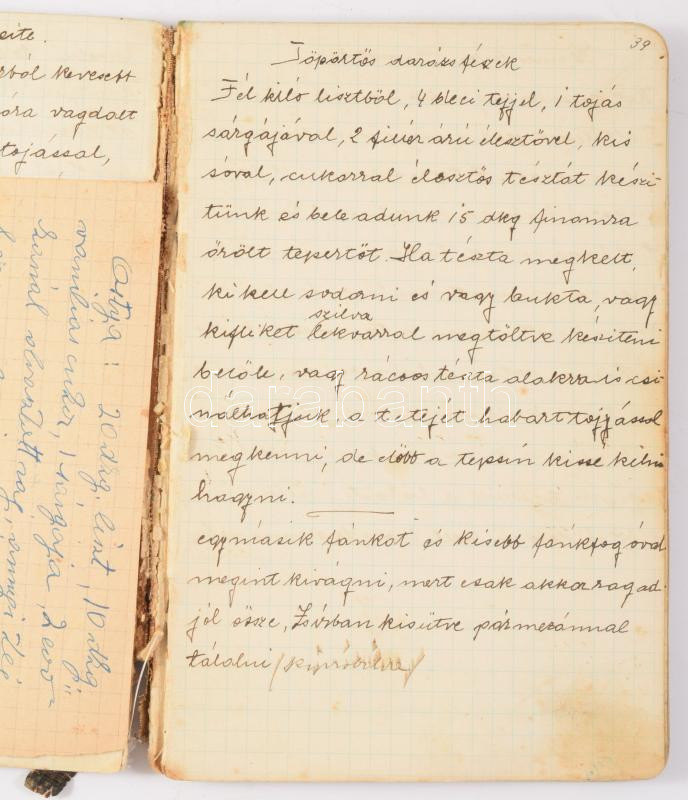 eite.
ból kevesebb
óra vagdalt
tojással,
Ostya: 20 dkg liszt, 10 dkg
vaniliás cukor, 1 sárgája, 2 evő-
kanál olvasztott vaj, annyi
39
Töpörtös darázsfészek
Fél kiló lisztböl, 4 deci tejjel, 1 tojás
sárgájával, 2 fillér árú élesztövel, kis
sóval, cukorral élesztös tésztát készi-
tünk és bele adunk 15 dkg finomra
örölt tepertöt. Ha tészta megkelt,
ki kell sodorni és vagy bukta, vagy
szilva
kifliket lekvárral megtöltve késziteni
belöle, vagy rácsos tészta alakra is csi-
nálhatjuk, a tetejét habart tojással
megkenni, de elöbb a tepsin kissé kelni
hagyni.
egymásik fánkot és kisebb fánkfogóval
megint kivágni, mert csak akkor ragad
jól össze, Zsírban kisütve pármezánnal
tálalni /kipróbálva/
darabanth